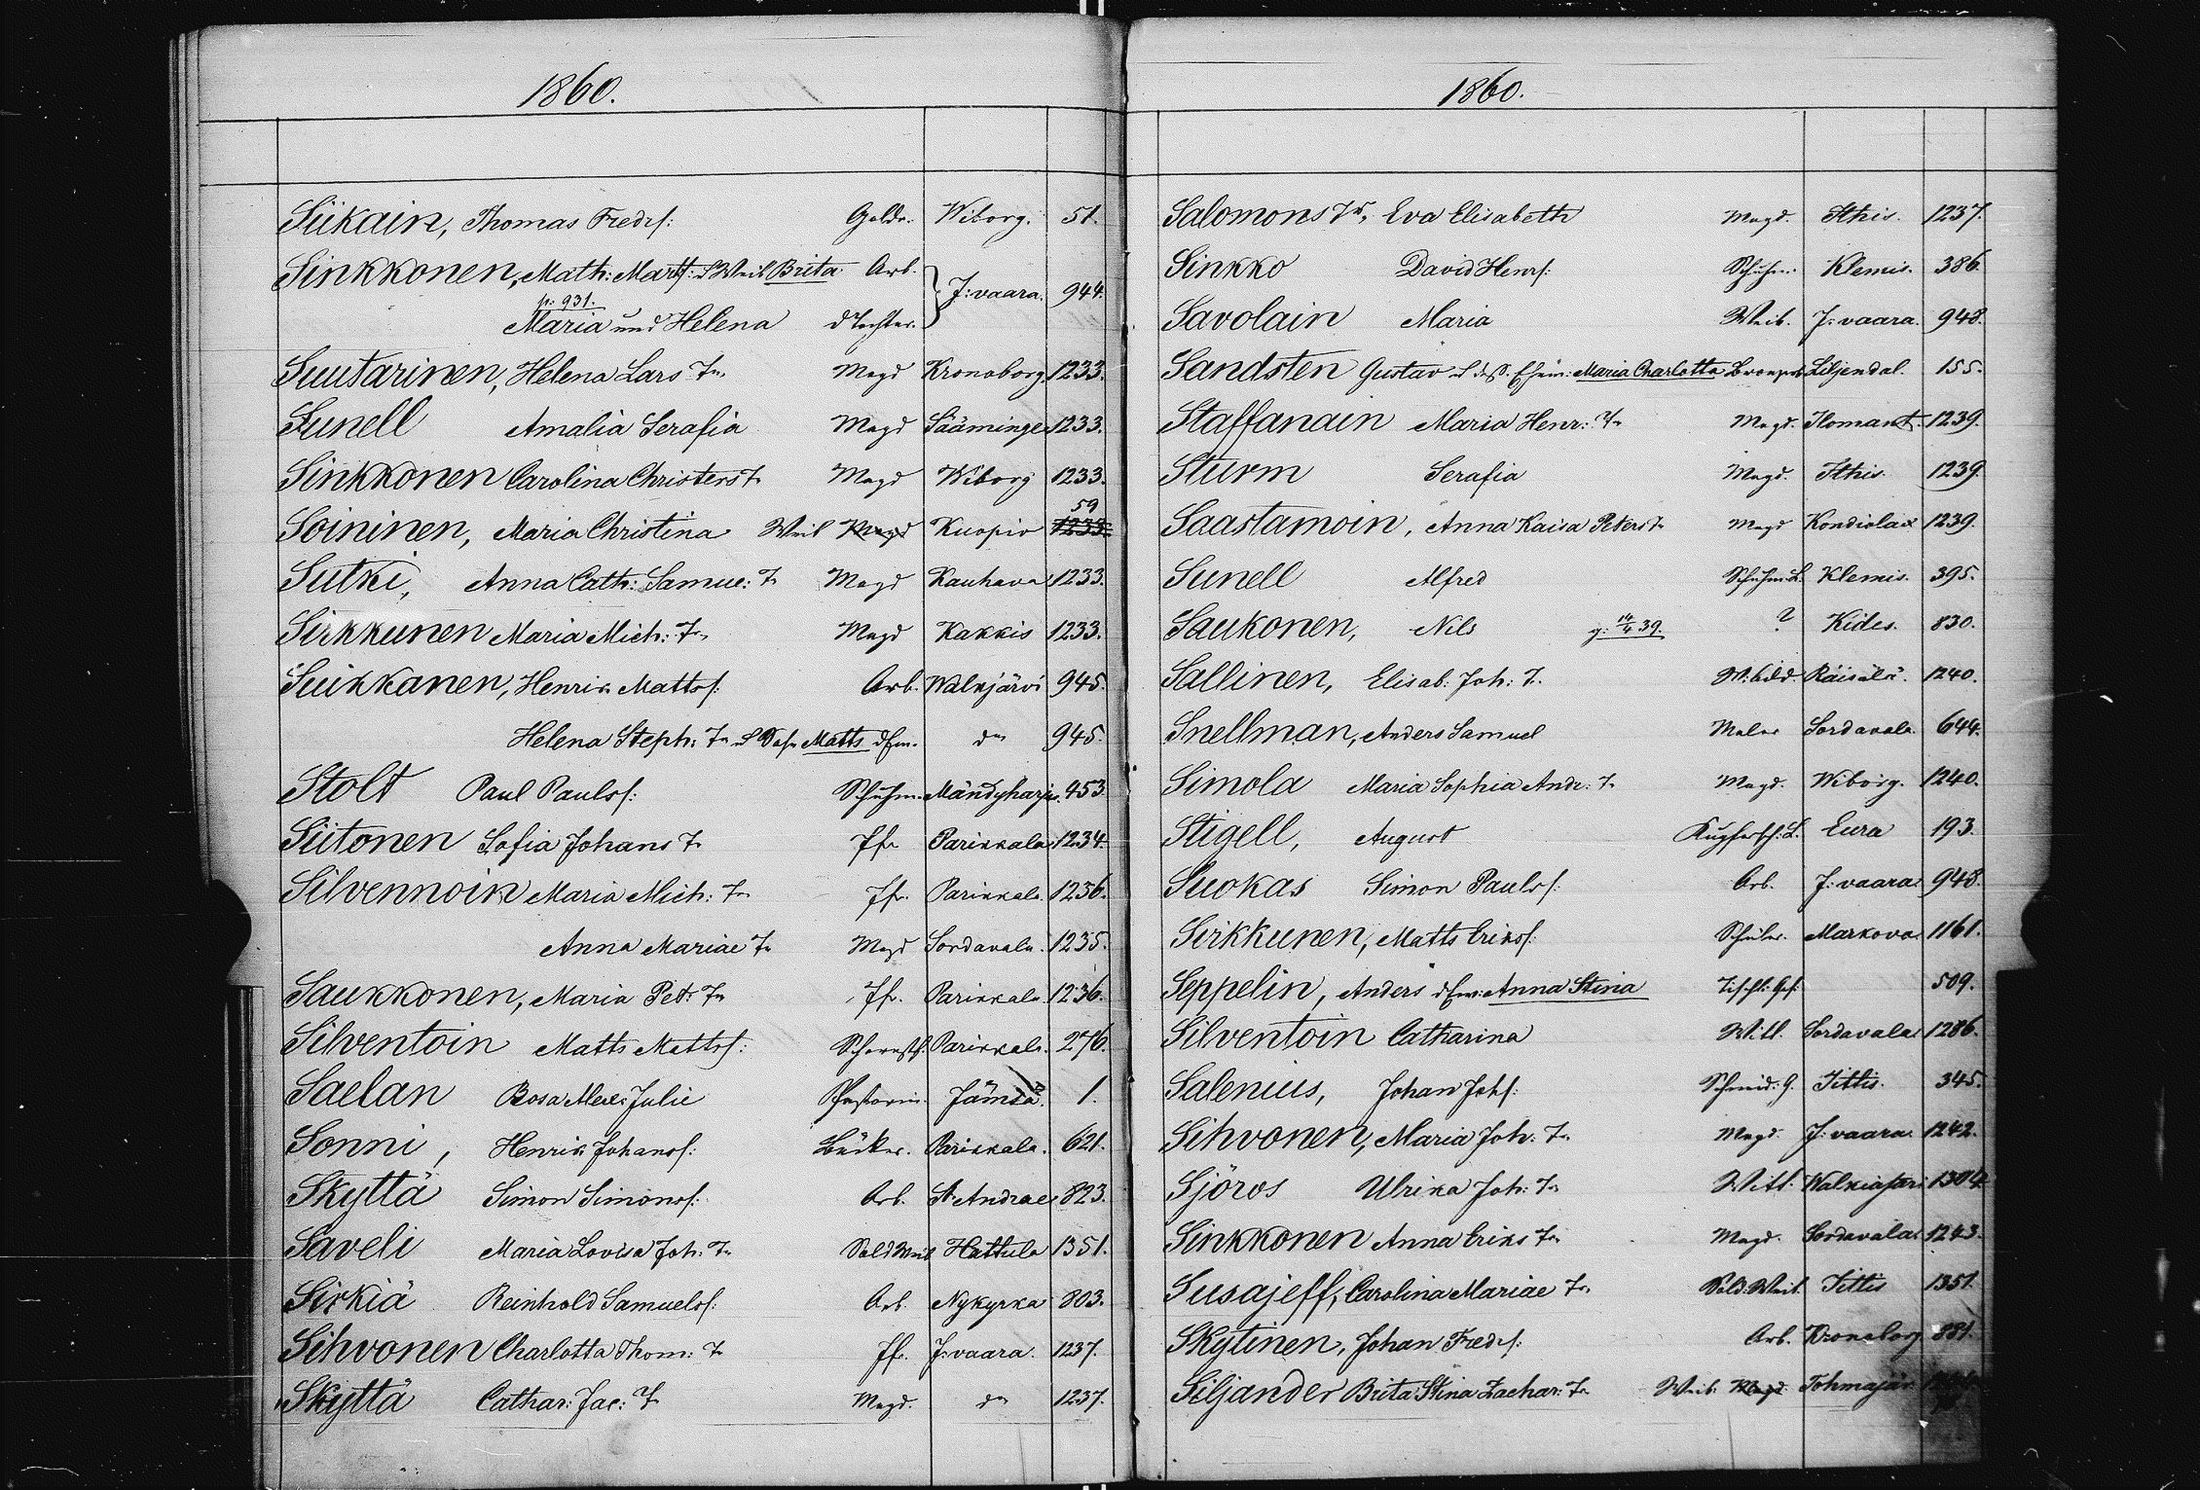 1860.
Siikain, Thomas Fredrs: Golda. Wiborg. 51.
Sinkkonen, Math: Matts: d Weib Brita Arb.
p: 931. J:vaara. 944.
Maria und Helena d Tochter.
Suutarinen, Helena Lars Tr. Magd Kronoborg 1233.
Sunell Amalia Serafia Magd Sääminge 1233.
Sinkkonen Carolina Christers T. Magd Wiborg 1233.
59
Soininen, Maria Christina Weib Magd Kuopio 1233.
Sutki, Anna Cath: Samue: T. Magd Kauhava 1233.
Sirkkunen Maria Mich: Tr. Magd Kakkis 1233.
Suikkanen, Henrik Mattss: Arb. Walkjärvi 945.
Helena Steph: Tr d Sohn Matts do 945.
Stolt Paul Paulss: Schuhm. Mändyharju. 453.
Siitonen Sofia Johans T. Jfr Parikkala 1234.
Silvennoin Maria Mich: Tr Jfr. Parikkala. 1236.
Anna Mariae Tr Magd Sordavala. 1235.
Saukkonen, Maria Pet: Tr Jfr. Parikkala 1236.
Silventoin Matts Mattss: Parikkala. 276.
Saelan Rosa Alex: Julie Pastorin. Jämsä. 1.
Sonni, Henrik Johanss: Bäcker. Parikkala. 621.
Skyttä Simon Simonss: Arb. St Andrae 823.
Saveli Maria Lovisa Joh: Tr Sold Weib Hattula 1351.
Sirkiä Reinhold Samuelss: Arb. Nykyrka 803.
Sihvonen Charlotta Thom: T. Jfr. J:vaara. 1237.
Skyttä Cathar: Jac: T. Magd. do 1237.
1860.
Salomons Tr, Eva Elisabeth Magd. Ithis. 1237.
Sinkko David Henrs: Schuhm: Klemis. 386.
Savolain Maria Weib. J:vaara. 948.
Sandsten Gustav d Maria Charlotta Liljendal. 155.
Staffanain Maria Henr: Tr Magd. Ilomant. 1239.
Sturm Serafia Magd. Ithis. 1239.
Saastamoin, Anna Kaisa Peters Tr Magd Kondiolax 1239.
Sunell Alfred Schuhm: L. Klemis. 395.
Saukonen, Nils g: 14/4 39. ? Kides. 830.
Sallinen, Elisab: Joh: T. Räisälä. 1240.
Snellman, Anders Samuel Maler Sordavala. 644.
Simola Maria Sophia Andr: T. Magd. Wiborg. 1240.
Stigell, August Kupfersch: L. Eura 193.
Suokas Simon Paulss: Arb. J:vaara 948.
Sirkkunen, Matts Erikss: Schüler. Markova 1161.
Seppelin, Anders Anna Stina Tischl: Ges: 509.
Silventoin Catharina Witt. Sordavala 1286.
Salenius, Johan Johs: Schmid: G. Jittis. 345.
Sihvonen, Maria Joh: Tr. Magd. J:vaara. 1242.
Sjöros Ulrika Joh: Tr Witt. Walkiasari 1304.
Sinkkonen Anna Eriks Tr Magd. Sordavala 1243.
Susajeff, Carolina Mariae Tr. Sold: Weib. Jittis 1351.
Skytinen, Johan Fredrs: Arb. Kronoborg 881.
Siljander Brita Stina Zachar: Tr Weib. Magd. Tohmajär.